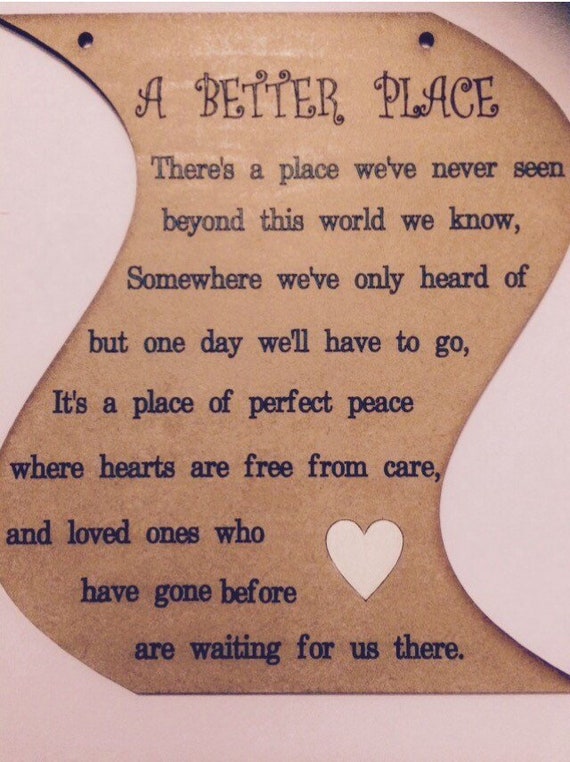 A BETTER PLACE
There's a place we've never seen
beyond this world we know,
Somewhere we've only heard of
but one day we'll have to go,
It's a place of perfect peace
where hearts are free from care,
and loved ones who
have gone before
are waiting for us there.